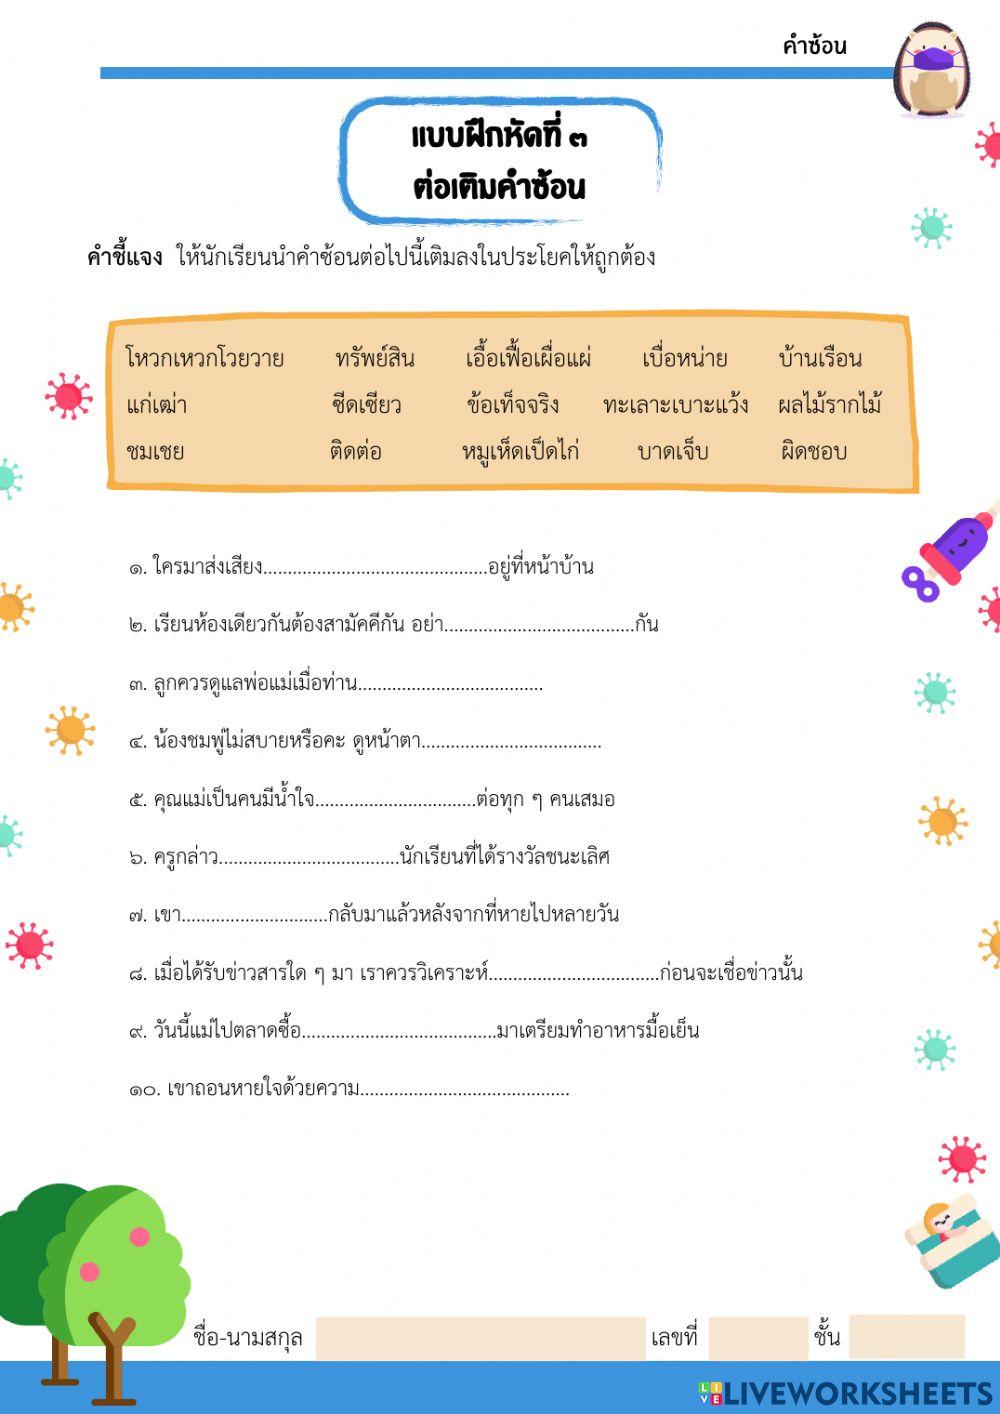 คำซ้อน
แบบฝึกหัดที่ ๓
ต่อเติมคำซ้อน
คำชี้แจง ให้นักเรียนนำคำซ้อนต่อไปนี้เติมลงในประโยคให้ถูกต้อง
โหวกเหวกโวยวาย ทรัพย์สิน เอื้อเฟื้อเผื่อแผ่ เบื่อหน่าย บ้านเรือน
แก่เฒ่า ซีดเซียว ข้อเท็จจริง ทะเลาะเบาะแว้ง ผลไม้รากไม้
ชมเชย ติดต่อ หมูเห็ดเป็ดไก่ บาดเจ็บ ผิดชอบ
๑. ใครมาส่งเสียง..............................................อยู่ที่หน้าบ้าน
๒. เรียนห้องเดียวกันต้องสามัคคีกัน อย่า.......................................กัน
๓. ลูกควรดูแลพ่อแม่เมื่อท่าน......................................
๔. น้องชมพู่ไม่สบายหรือคะ ดูหน้าตา.....................................
๕. คุณแม่เป็นคนมีน้ำใจ.................................ต่อทุก ๆ คนเสมอ
๖. ครูกล่าว.....................................นักเรียนที่ได้รางวัลชนะเลิศ
๗. เขา..............................กลับมาแล้วหลังจากที่หายไปหลายวัน
๘. เมื่อได้รับข่าวสารใด ๆ มา เราควรวิเคราะห์...................................ก่อนจะเชื่อข่าวนั้น
๙. วันนี้แม่ไปตลาดซื้อ........................................มาเตรียมทำอาหารมื้อเย็น
๑๐. เขาถอนหายใจด้วยความ...........................................
ชื่อ-นามสกุล เลขที่ ชั้น
LIVE LIVEWORKSHEETS